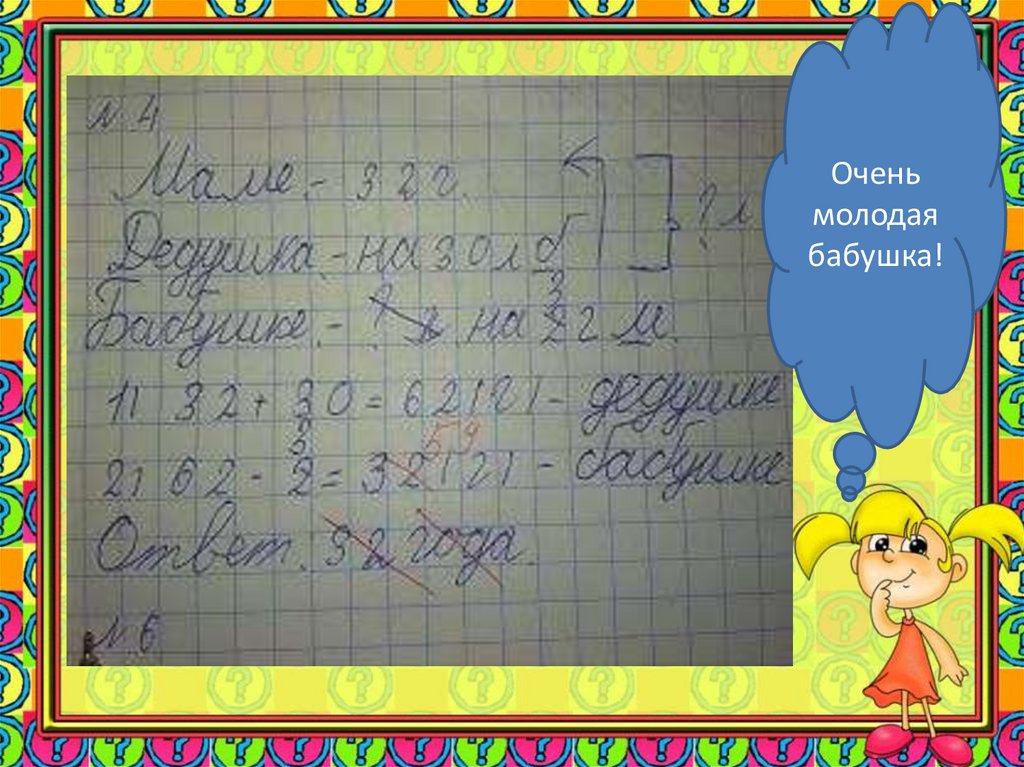 N 4
Маме - 32 г.
Дедушка - на 30 л б ? л
Бабушке - ? на 2 г м.
1) 32 + 30 = 62 (г) - дедушке
3
59
2) 62 - 2 = 32 (г) - бабушке
Ответ. 32 года.
N 6
Очень
молодая
бабушка!